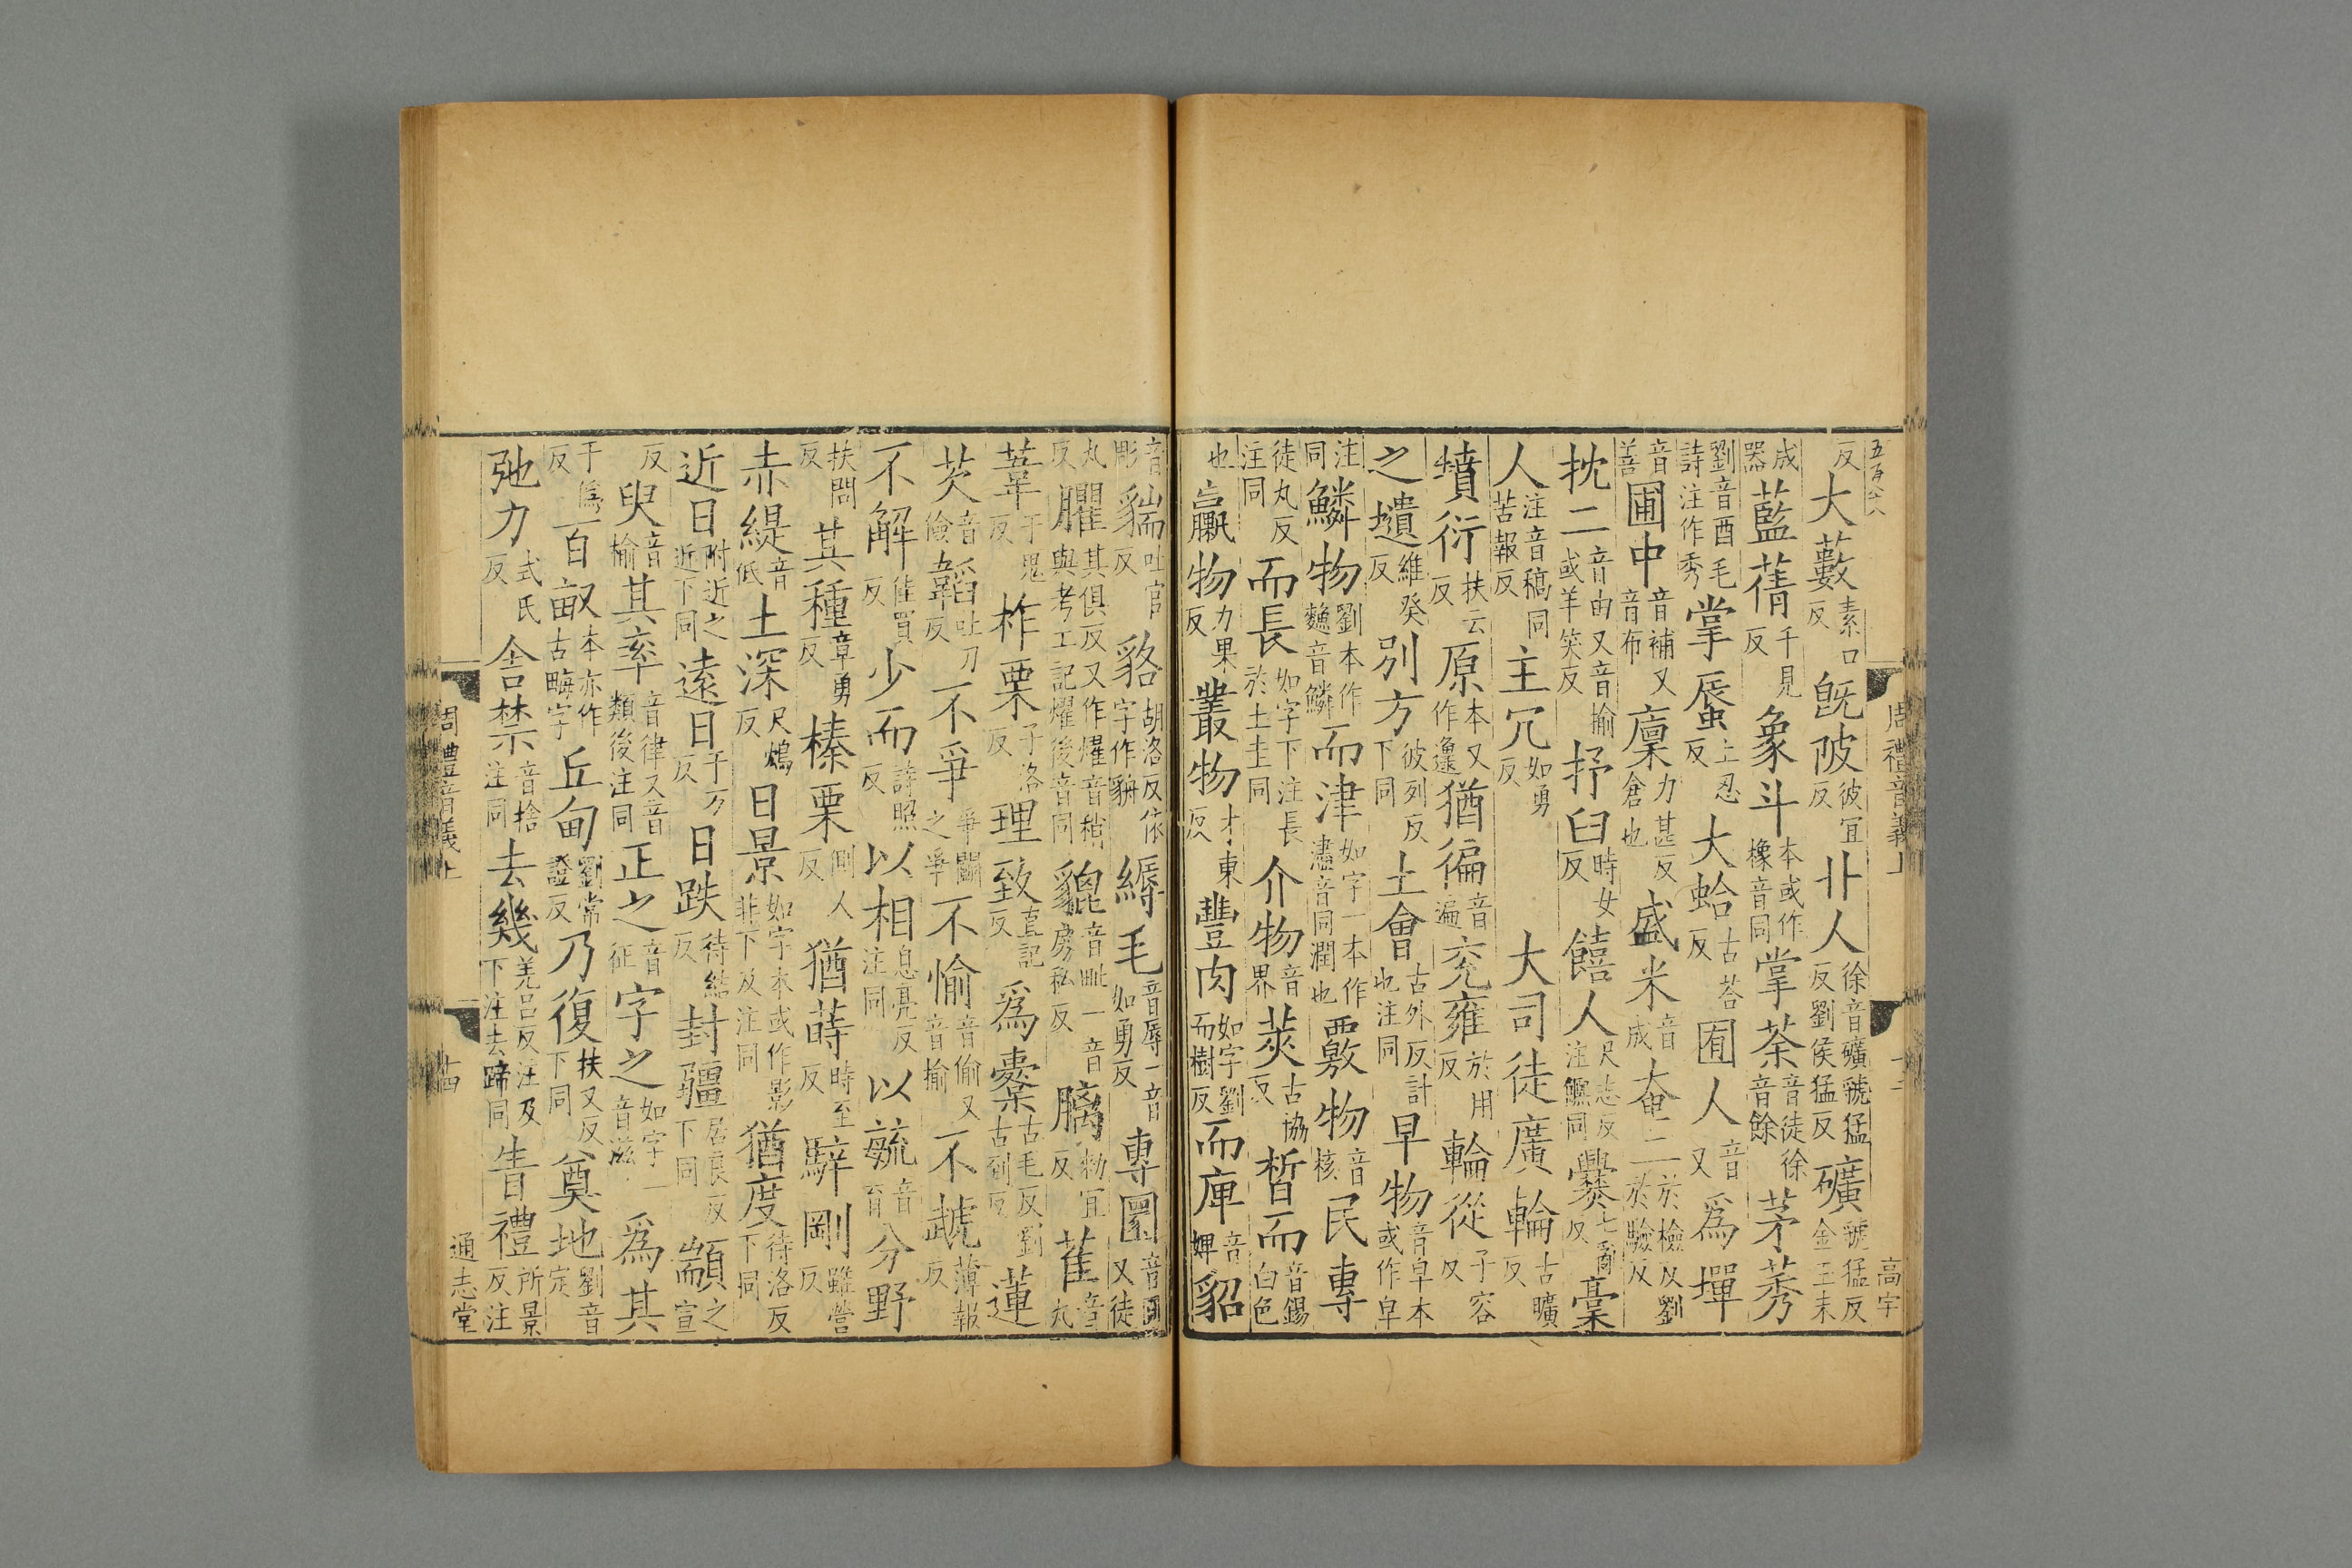 五百六八
反大藪素口反旣陂彼宜反卝人徐音礦虢猛反劉侯猛反礦虢猛反金玉未
成器藍蒨千見反象斗本或作橡音同掌荼音徒徐音餘茅莠
劉音酉毛詩注作秀掌蜃上忍反大蛤古荅反囿人音又爲墠
音善圃中音補又音布廩力甚反倉也盛米音成奄二於檢反劉於驗反
抌二音由又音揄或羊笑反抒臼時女反饎人尺志反注𩟄同爨七亂反槀
人注音稿同苦報反主冗如勇反大司徒廣輪古曠反
墳衍扶云反原本又作邍猶徧音遍兖雍於用反輪從子容反
之壝維癸反別方彼列反下同土會古外反計也注同早物音皁本或作皁
注同鱗物劉本作𩺰音鱗而津如字一本作濜音同潤也覈物音核民專
徒丸反注同而長如字下注長於土圭同介物音界莢古協反晳而音錫白色
也臝物力果反叢物才東反豐肉如字劉而樹反而庳音婢貂
音彫貒吐官反貉胡洛反依字作貈縟毛音辱一音如勇反專圜音圓又徒
丸反臞其俱反又作燿音稍與考工記燿後音同貔音毗一音房私反膬物宜反萑音丸
葦于鬼反柞栗子洛反理致直記反爲櫜古毛反劉古到反蓮
芡音儉韜吐刀反不爭爭鬭之爭不愉音偷又音揄不虣薄報反
不解佳賣反少而詩照反以相息亮反注同以毓音育分野
扶問反其種章勇反榛栗側人反猶蒔時至反騂剛雖營反
赤緹音低土深尺鴆反日景如字本或作影非下及注同猶度待洛反下同
近日附近之近下同遠日于万反日跌待結反封疆居良反下同顓之宣
反臾音楡其率音律又音類後注同正之音征字之如字一音滋爲其
于僞反百畝本亦作古畮字丘甸劉常證反乃復扶又反下同奠地劉音定
弛力式氏反舍禁音捨注同去幾羌呂反注及下注去蹄同眚禮所景反注
周禮音義上
十三
高宇
周禮音義上
十四
通志堂